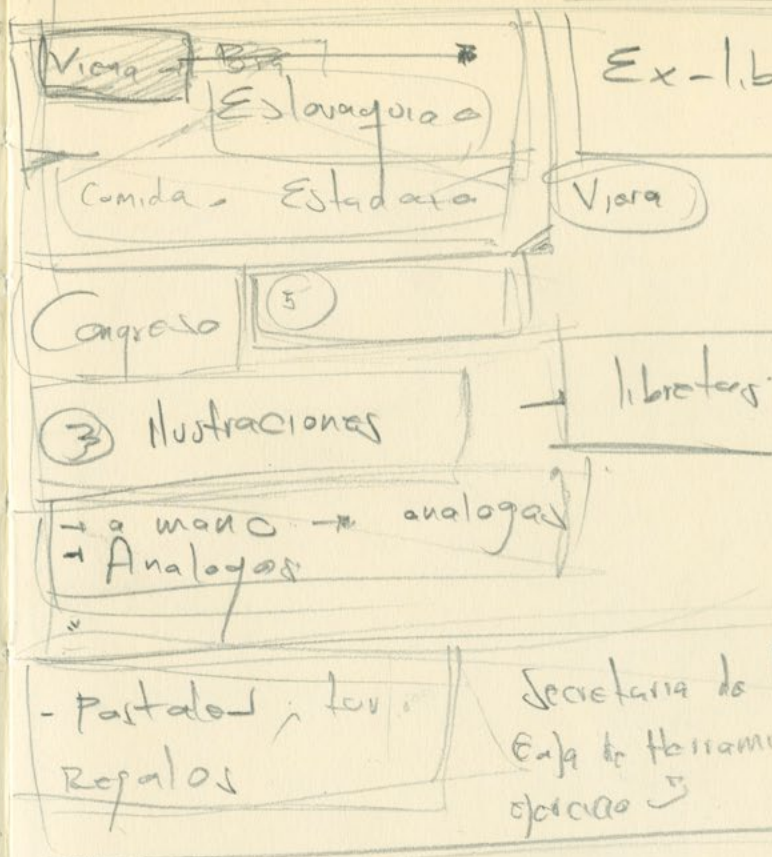 Viena →
Ex-lib
Eslovaquia
Comida - Estadara
Viera
Congreso
5
3 Ilustraciones
→ libretas
→ a mano → analogas
→ Analogas
- Postales ;
Regalos
Secretaria de
Caja de Herrami
ejercicio